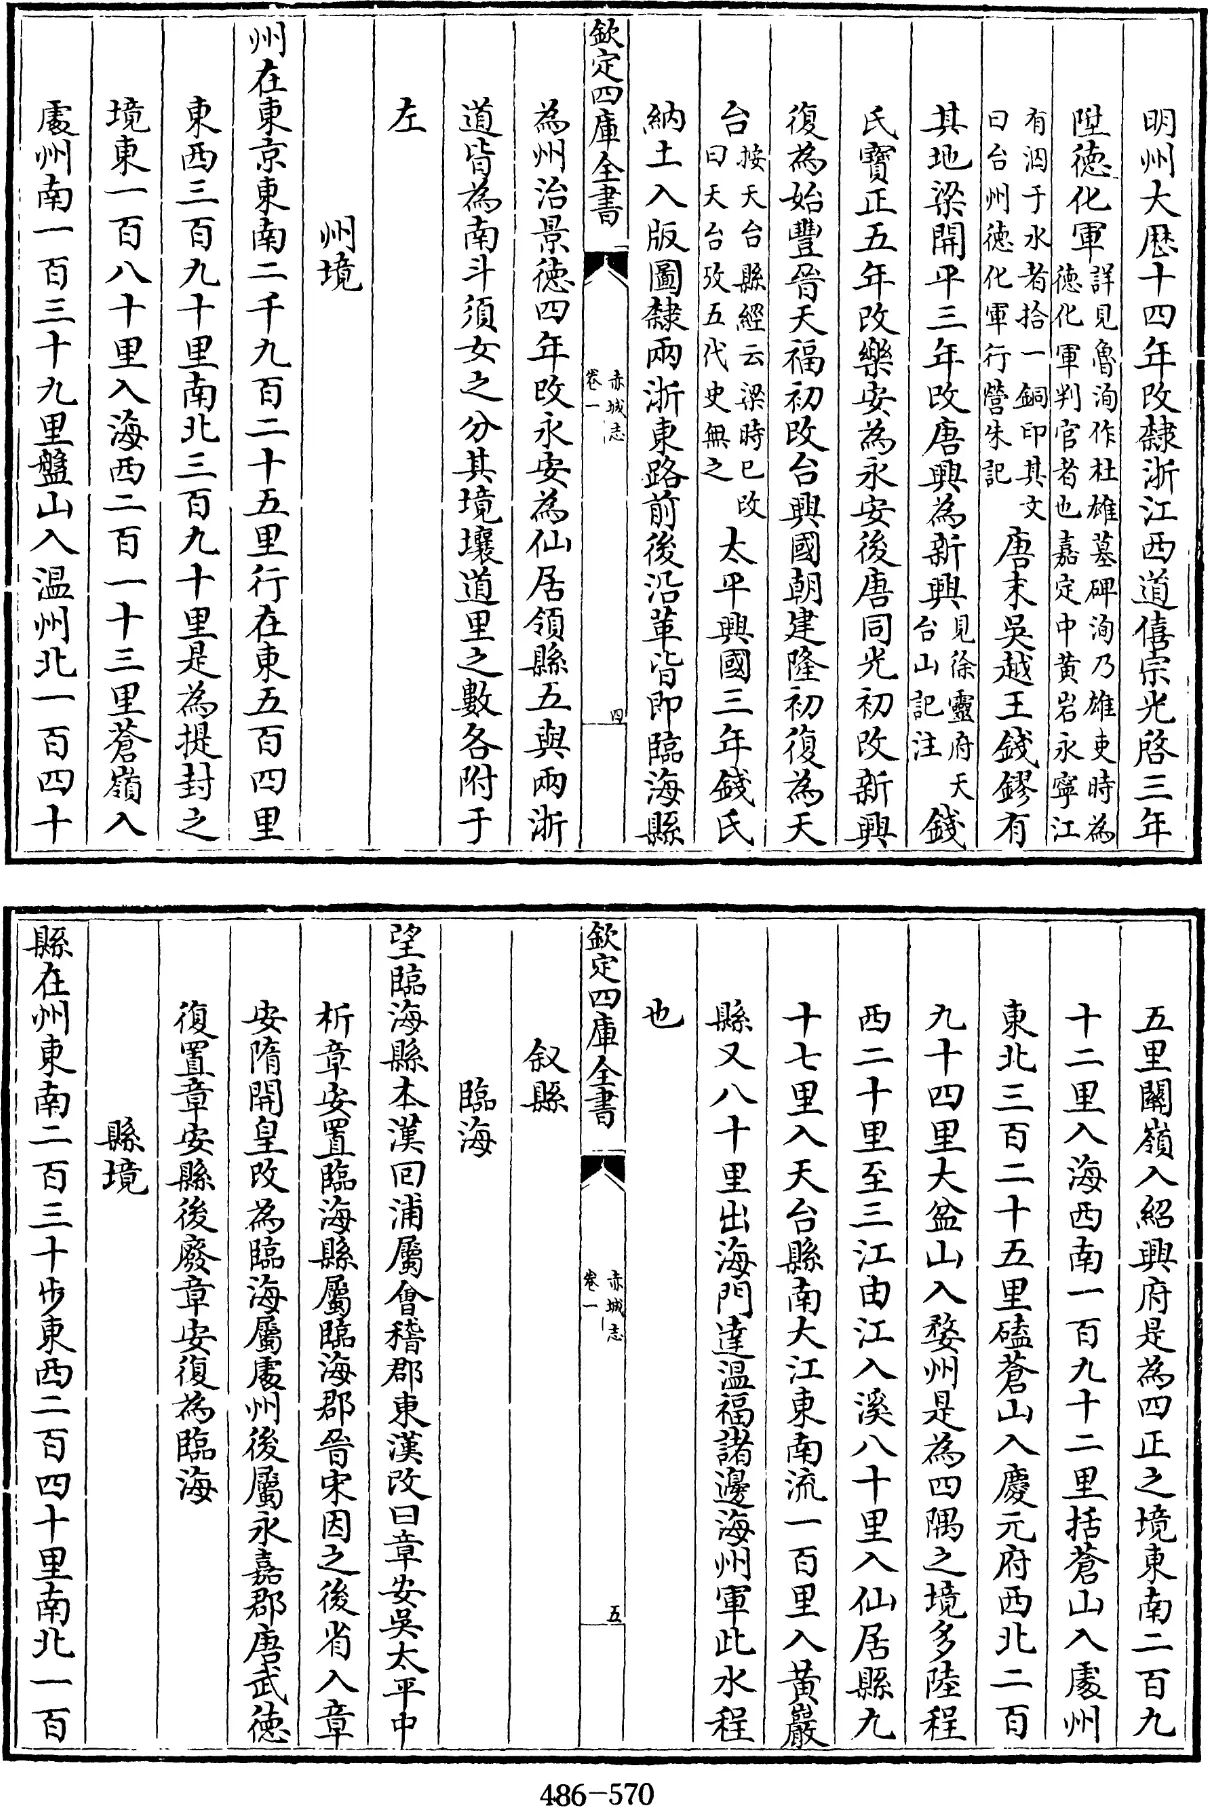 明州大厯十四年改隸浙江西道僖宗光啓三年
陞德化軍詳見魯洵作杜雄墓碑洵乃雄吏時為
德化軍判官者也嘉定中黄岩永寧江
有泅于水者拾一銅印其文
曰台州德化軍行營朱記唐末吳越王錢鏐有
其地梁開平三年改唐興為新興見徐靈府天
台山記注錢
氏寶正五年改樂安為永安後唐同光初改新興
復為始豐晉天福初改台興國朝建隆初復為天
台按天台縣經云梁時已改
曰天台攷五代史無之太平興國三年錢氏
納土入版圖隸兩浙東路前後沿革皆即臨海縣
欽定四庫全書
赤城志
卷一
四
為州治景德四年改永安為仙居領縣五與兩浙
道皆為南斗須女之分其境壤道里之數各附于
左
州境
州在東京東南二千九百二十五里行在東五百四里
東西三百九十里南北三百九十里是為提封之
境東一百八十里入海西二百一十三里蒼嶺入
處州南一百三十九里盤山入温州北一百四十
五里關嶺入紹興府是為四正之境東南二百九
十二里入海西南一百九十二里括蒼山入處州
東北三百二十五里磕蒼山入慶元府西北二百
九十四里大盆山入婺州是為四隅之境多陸程
西二十里至三江由江入溪八十里入仙居縣九
十七里入天台縣南大江東南流一百里入黄巖
縣又八十里出海門達温福諸邊海州軍此水程
也
欽定四庫全書
赤城志
卷一
五
叙縣
臨海
望臨海縣本漢回浦屬會稽郡東漢改曰章安吳太平中
析章安置臨海縣屬臨海郡晉宋因之後省入章
安隋開皇改為臨海屬處州後屬永嘉郡唐武德
復置章安縣後廢章安復為臨海
縣境
縣在州東南二百三十步東西二百四十里南北一百
486-570